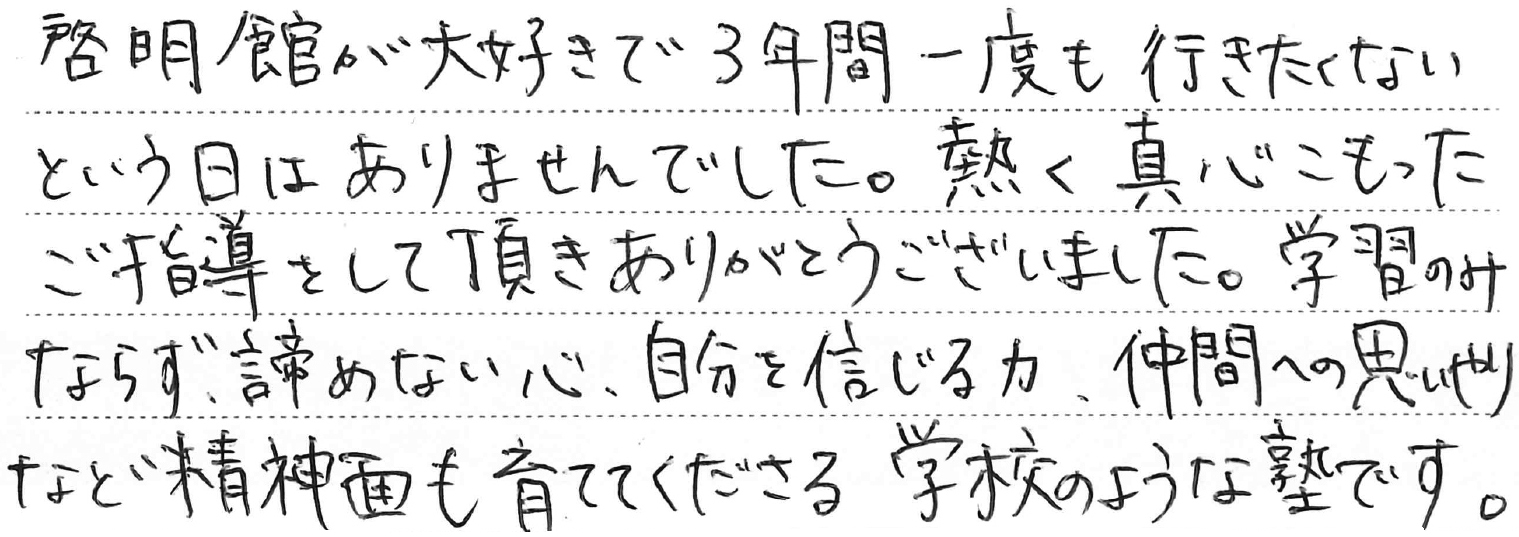 啓明館が大好きで3年間一度も行きたくない
という日はありませんでした。熱く真心こもった
ご指導をして頂きありがとうございました。学習のみ
ならず、諦めない心、自分を信じる力、仲間への思いやり
など精神面も育ててくださる学校のような塾です。